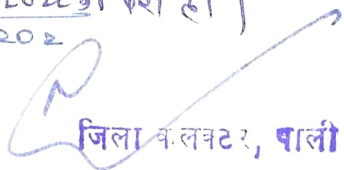 पेश हो।
202
जिला कलक्टर, पाली